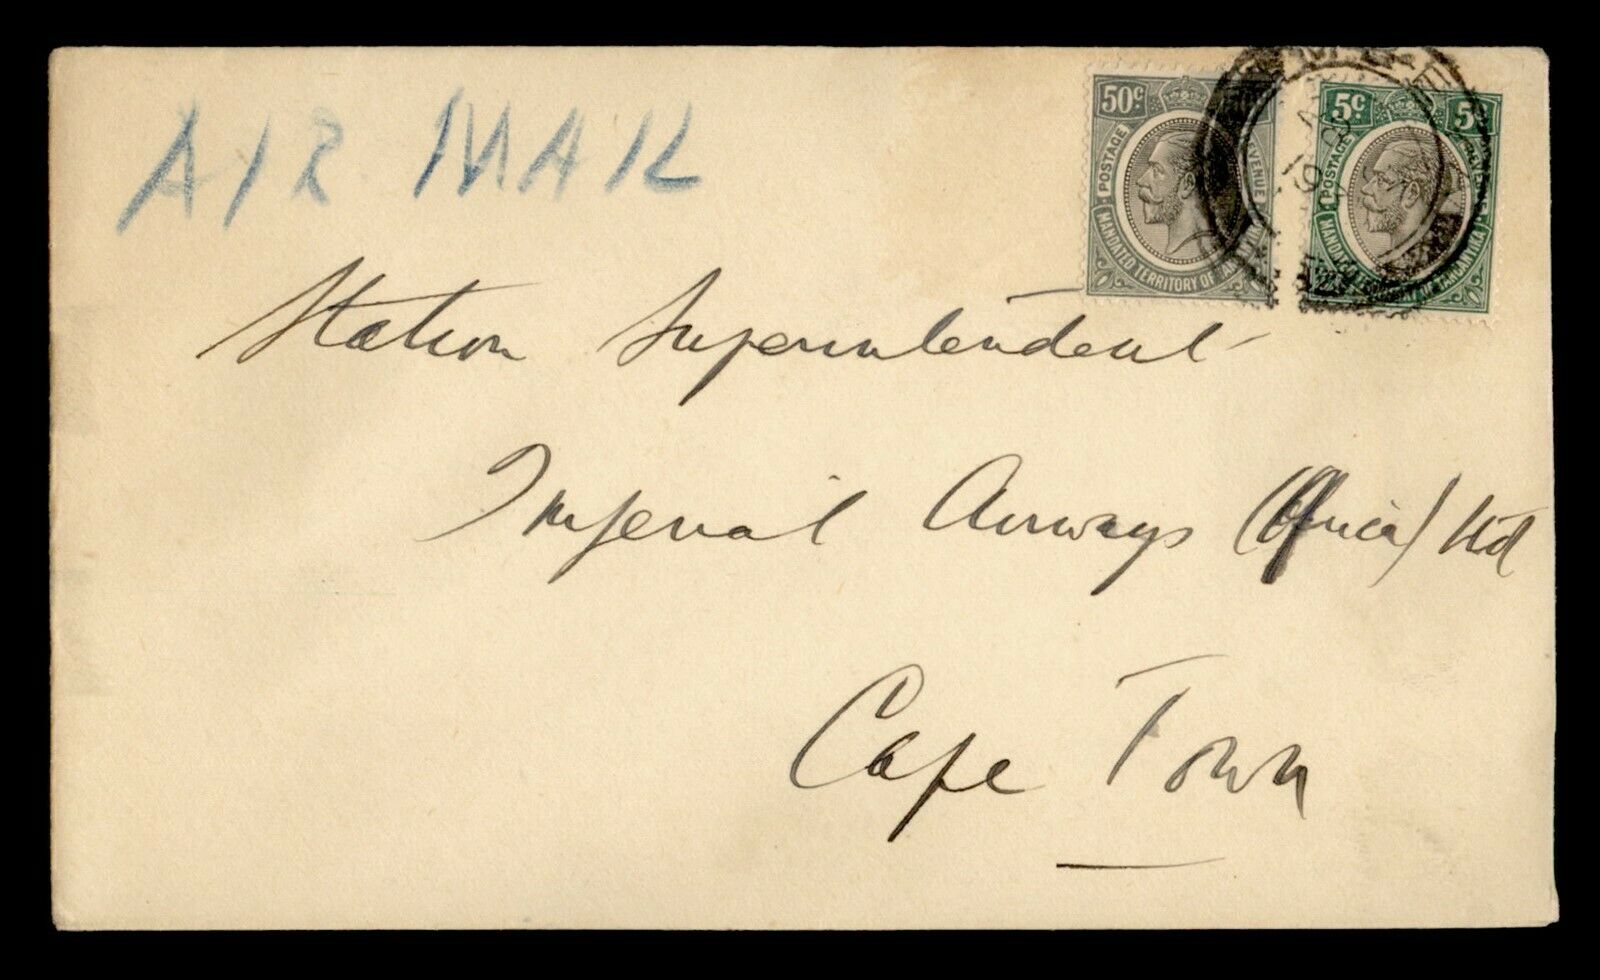 AIR MAIL
50c
POSTAGE
MANDATED TERRITORY OF
5c 5c
POSTAGE REVENUE
MANDATED TERRITORY OF TANGANYIKA
Station Superintendent
Imperial Airways (Africa) Ltd
Cape Town